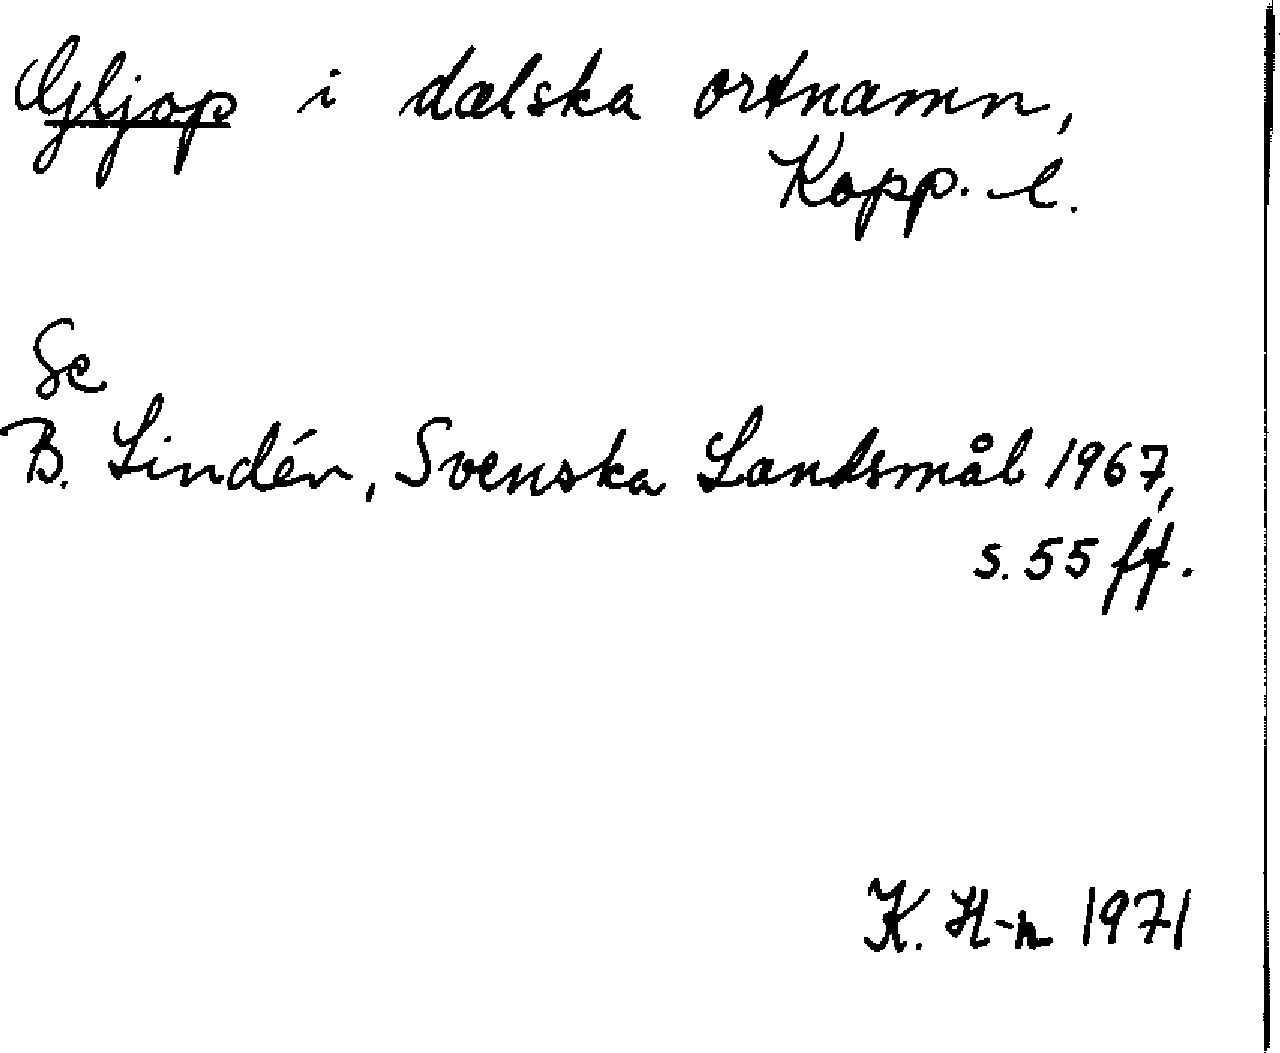 Gljop i dalska ortnamn,
Kopp. l.
Se
B. Lindén, Svenska Landsmål 1967,
s. 55 ff.
K. H-n 1971